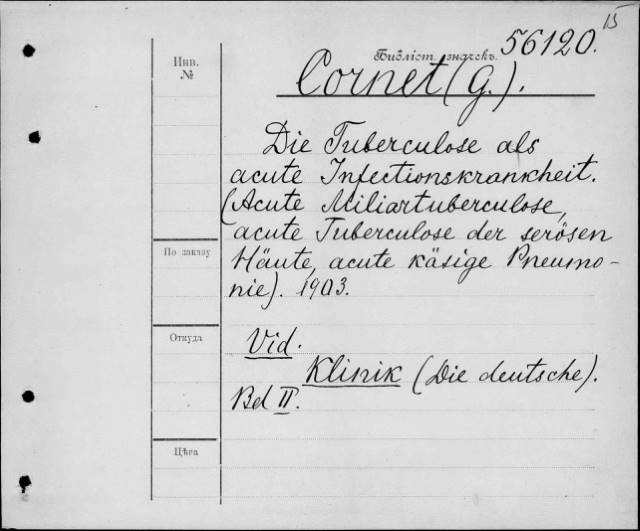 15
56120.
Инв.
№
Библіот. значекъ.
Cornet (G.).
Die Tuberculose als
acute Infectionskrankheit.
(Acute Miliartuberculose,
acute Tuberculose der serösen
Häute, acute käsige Pneumo-
nie). 1903.
По заказу
Откуда
Vid.
Klinik (Die deutsche).
Bd II.
Цѣна